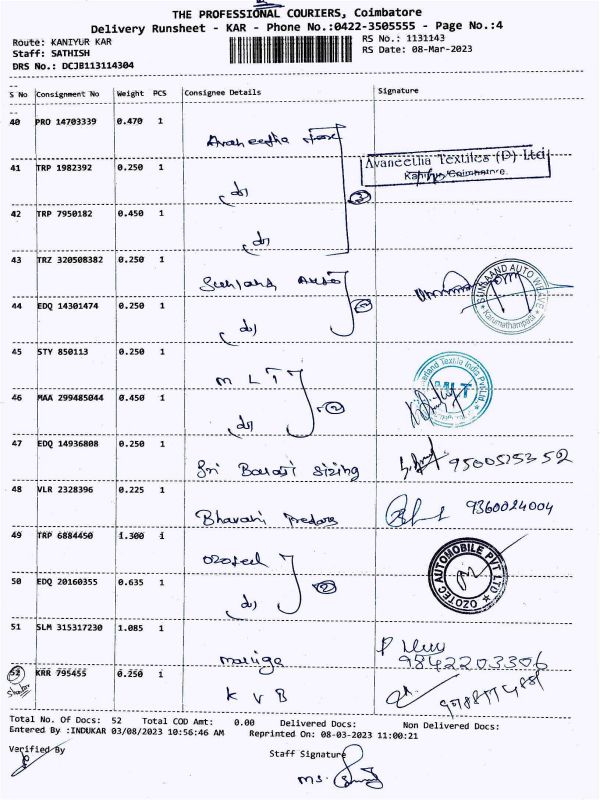 THE PROFESSIONAL COURIERS, Coimbatore
Delivery Runsheet - KAR - Phone No.:0422-3505555 - Page No.:4
Route: KANIYUR KAR
RS No.: 1131143
Staff: SATHISH
RS Date: 08-Mar-2023
DRS No.: DCJB113114304
S No Consignment No Weight PCS Consignee Details Signature
40 PRO 14703339 0.470 1
Avaneetha Tex
41 TRP 1982392 0.250 1
Avaneetha Textiles (P) Ltd
Kaniyur, Coimbatore.
do
3
42 TRP 7950182 0.450 1
do
43 TRZ 320508382 0.250 1
Sunland Auto
44 EDQ 14301474 0.250 1
do
2
45 STY 850113 0.250 1
M L T
MLT
46 MAA 299485044 0.450 1
do
2
47 EDQ 14936808 0.250 1
Sri Balaji Sizing
9500525352
48 VLR 2328396 0.225 1
Bhavani
9360024004
49 TRP 6884450 1.300 1
Ozoteel
OZOTEC AUTOMOBILE PVT LTD
50 EDQ 20160355 0.635 1
do
2
51 SLM 315317230 1.085 1
9842203306
52 KRR 795455 0.250 1
K V B
Total No. Of Docs: 52 Total COD Amt: 0.00 Delivered Docs: Non Delivered Docs:
Entered By :INDUKAR 03/08/2023 10:56:46 AM Reprinted On: 08-03-2023 11:00:21
Verified By
Staff Signature